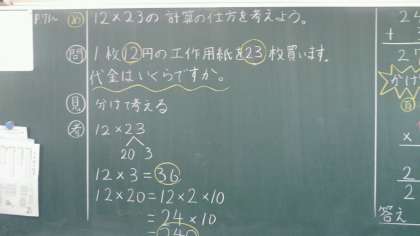 め 12×23の計算の仕方を考えよう。
問 1枚12円の工作用紙を23枚買います。
代金はいくらですか。
見 分けて考える
考 12×23
20 3
12×3=36
12×20=12×2×10
=24×10
=240
答え